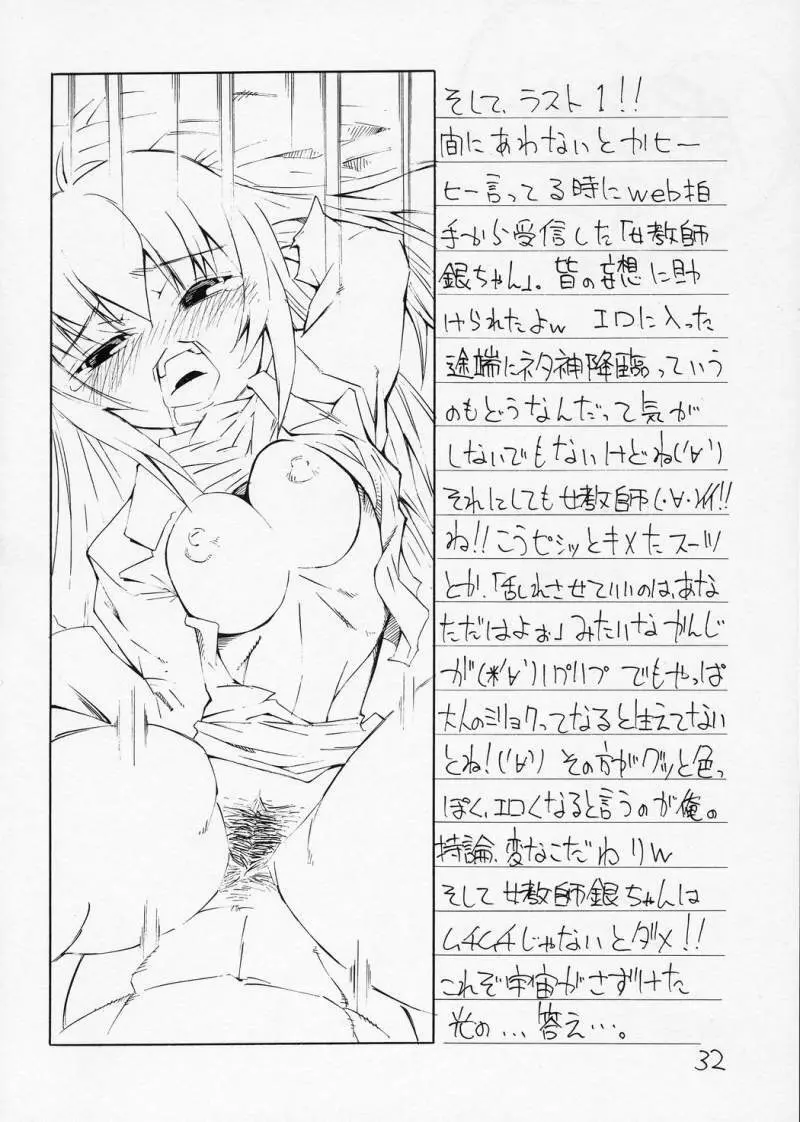 そして、ラスト1!!
間にあわないとかヒー
ヒー言ってる時にweb拍
手から受信した「女教師
銀ちゃん」。皆の妄想に助
けられたよw エロに入った
途端にネタ神降臨っていう
のもどうなんだって気が
しないでもないけどね('∀')
それにしても女教師(・∀・)イイ!!
ね!!こうピシッとキメたスーツ
とか、「乱れさせていいのは、あな
ただけよぉ」みたいなかんじ
が(*'∀')ハァハァ でもやっぱ
大人のミリョクってなると生えてない
とね!('∀') その方がグッと色っ
ぽく、エロくなると言うのが俺の
持論、変なこだわりw
そして女教師銀ちゃんは
ムチムチじゃないとダメ!!
これぞ宇宙がさずけた
光の...答え...。
32